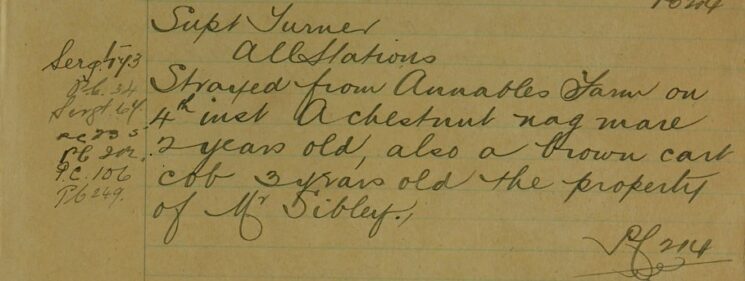 PC 214
Supt Turner
All Stations
Strayed from Annables Farm on
4th inst A chestnut nag mare
2 years old, also a brown cart
cob 3 years old the property
of Mr Sibley.,
PC 214
Sergt 173
P.C. 34
Sergt 64
PC 235
PC 202.
P.C. 106
PC 249.